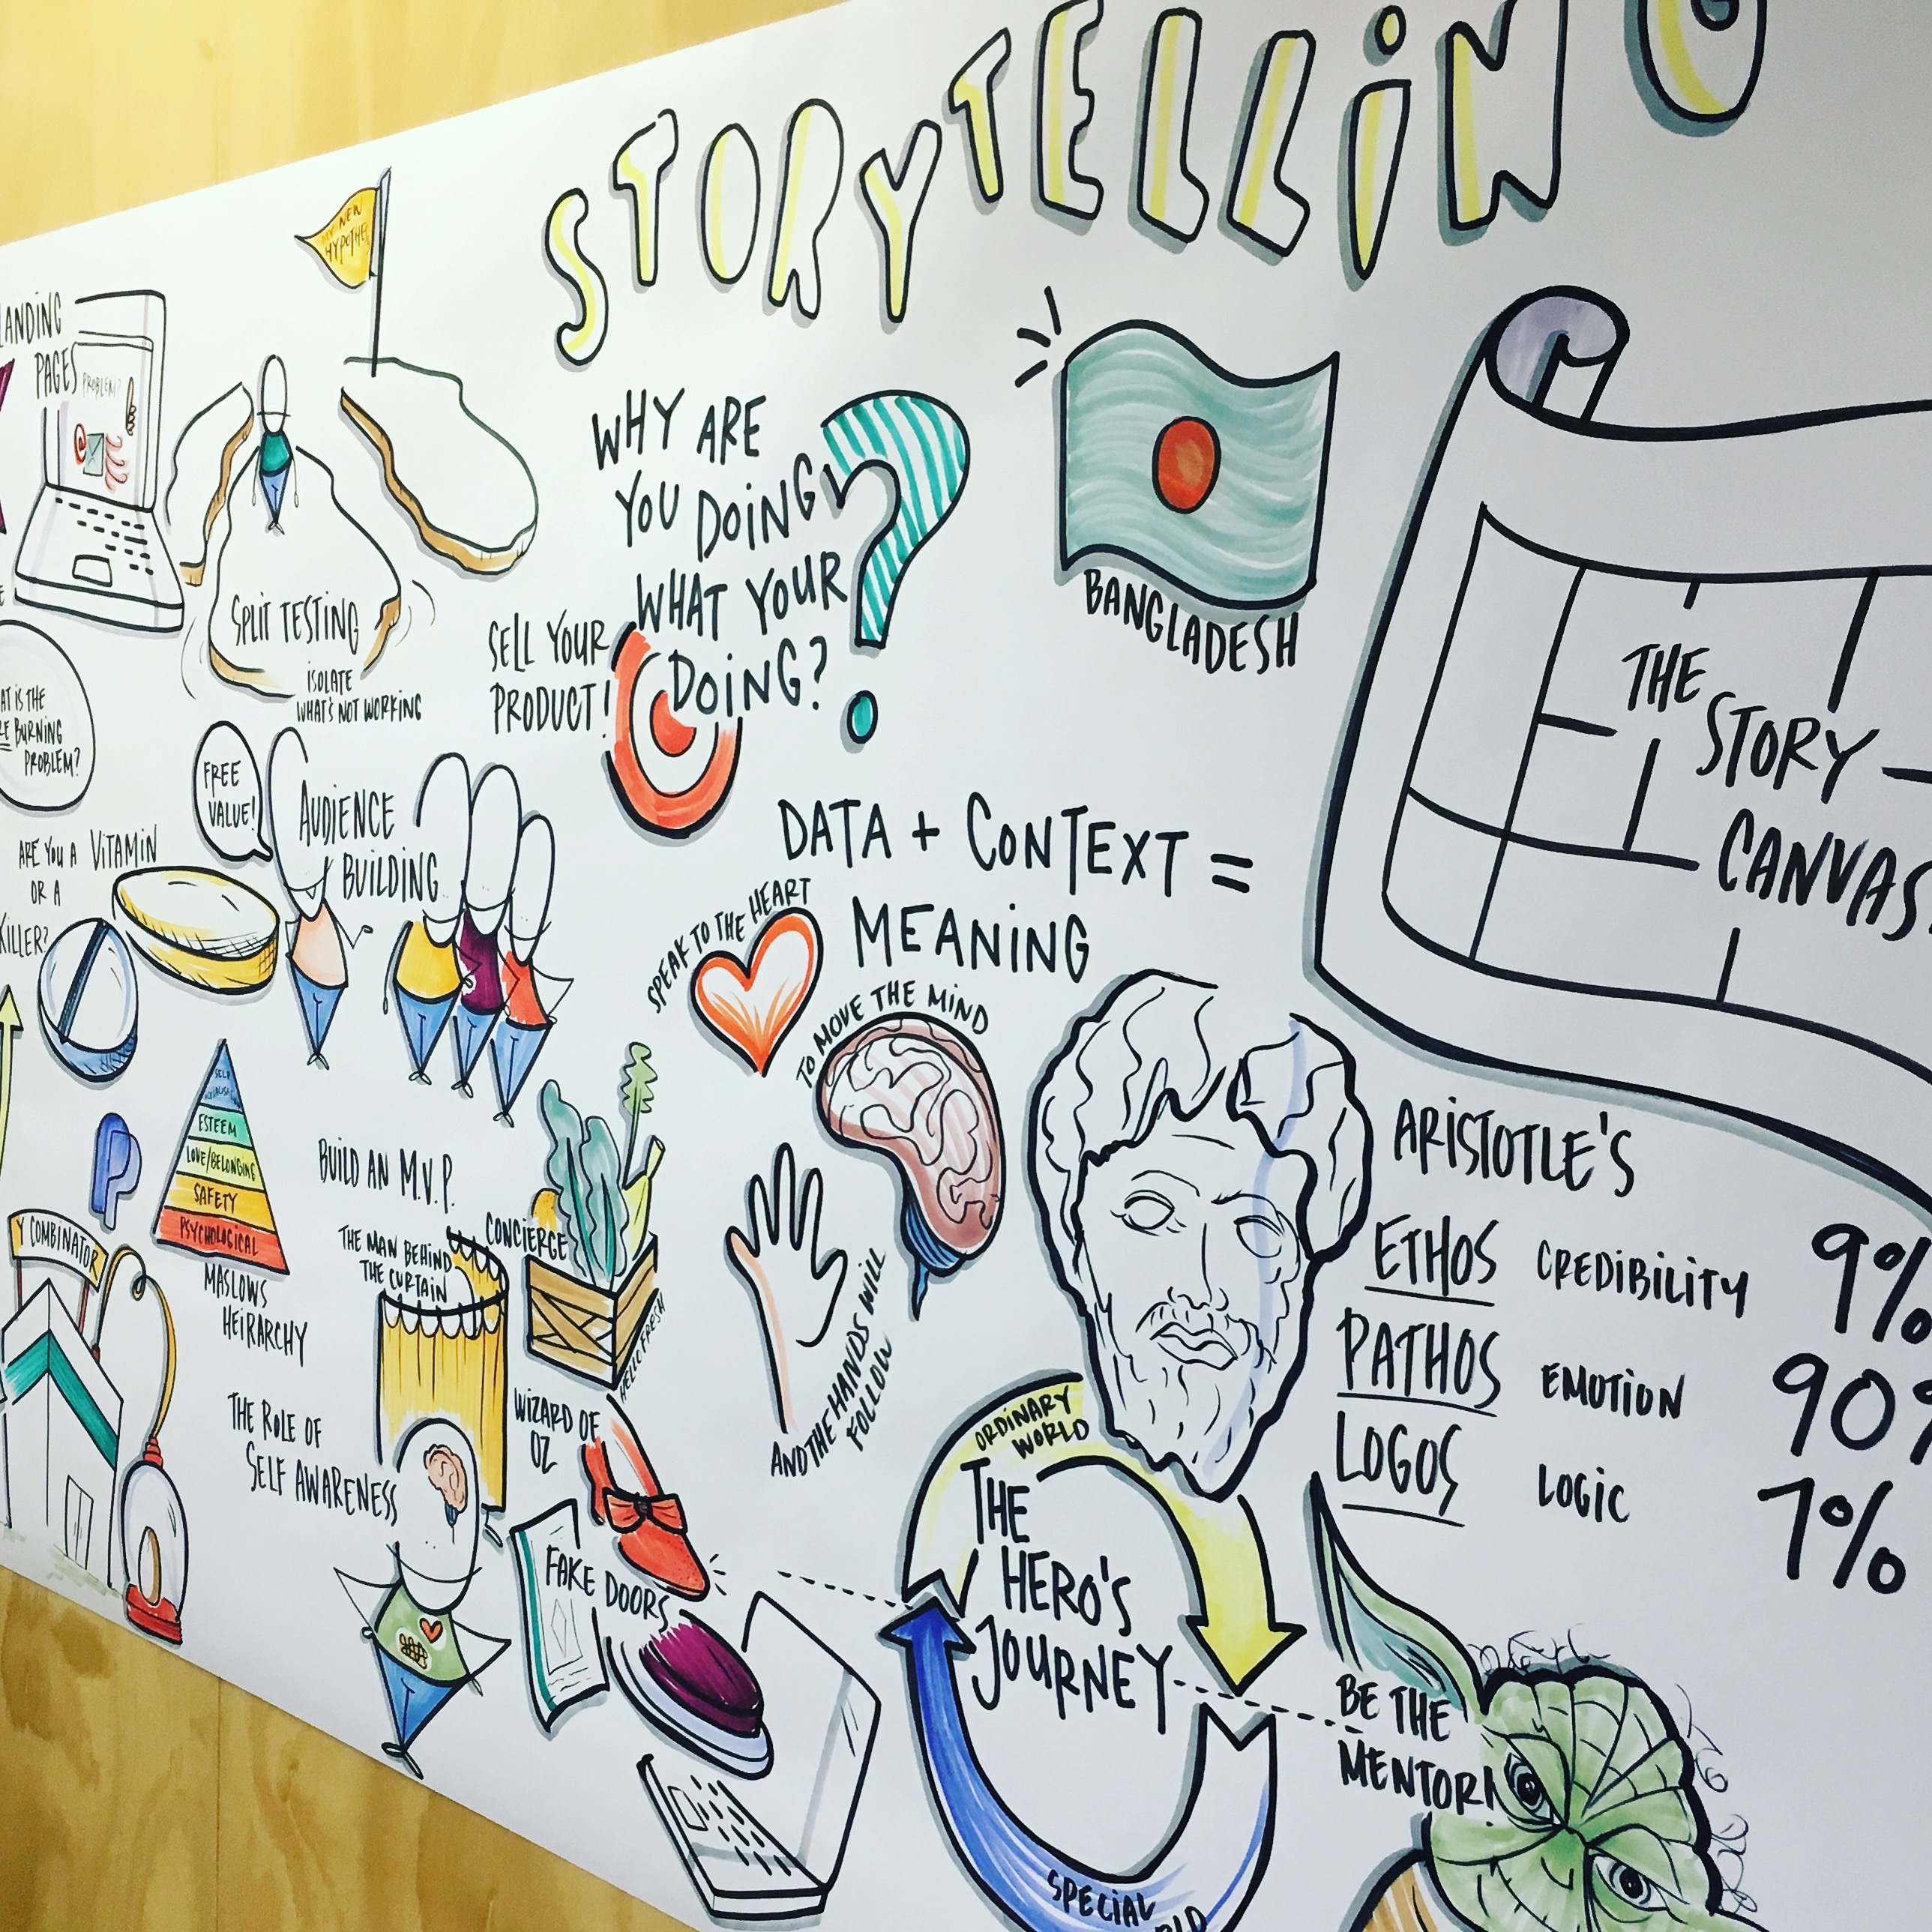 STORYTELLIN
MY NEW
HYPOTHE
LANDING
PAGES
PROBLEM?
SPLIT TESTING
ISOLATE
WHAT'S NOT WORKING
WHY ARE
YOU DOING
WHAT YOUR
DOING?
SELL YOUR
PRODUCT!
BANGLADESH
THE
STORY
CANVAS
IS THE
BURNING
PROBLEM?
FREE
VALUE!
AUDIENCE
BUILDING
ARE YOU A VITAMIN
OR A
KILLER?
DATA + CONTEXT =
MEANING
SPEAK TO THE HEART
TO MOVE THE MIND
AND THE HANDS WILL
FOLLOW
SELF
ESTEEM
LOVE/BELONGING
SAFETY
PSYCHOLOGICAL
MASLOWS
HEIRARCHY
P
Y COMBINATOR
BUILD AN M.V.P.
THE MAN BEHIND
THE CURTAIN
CONCIERGE
HELLO FRESH
WIZARD OF
OZ
THE ROLE OF
SELF AWARENESS
FAKE DOORS
ARISTOTLE'S
ETHOS CREDIBILITY 9%
PATHOS EMOTION 90%
LOGOS LOGIC 1%
ORDINARY
WORLD
THE
HERO'S
JOURNEY
SPECIAL
BE THE
MENTOR